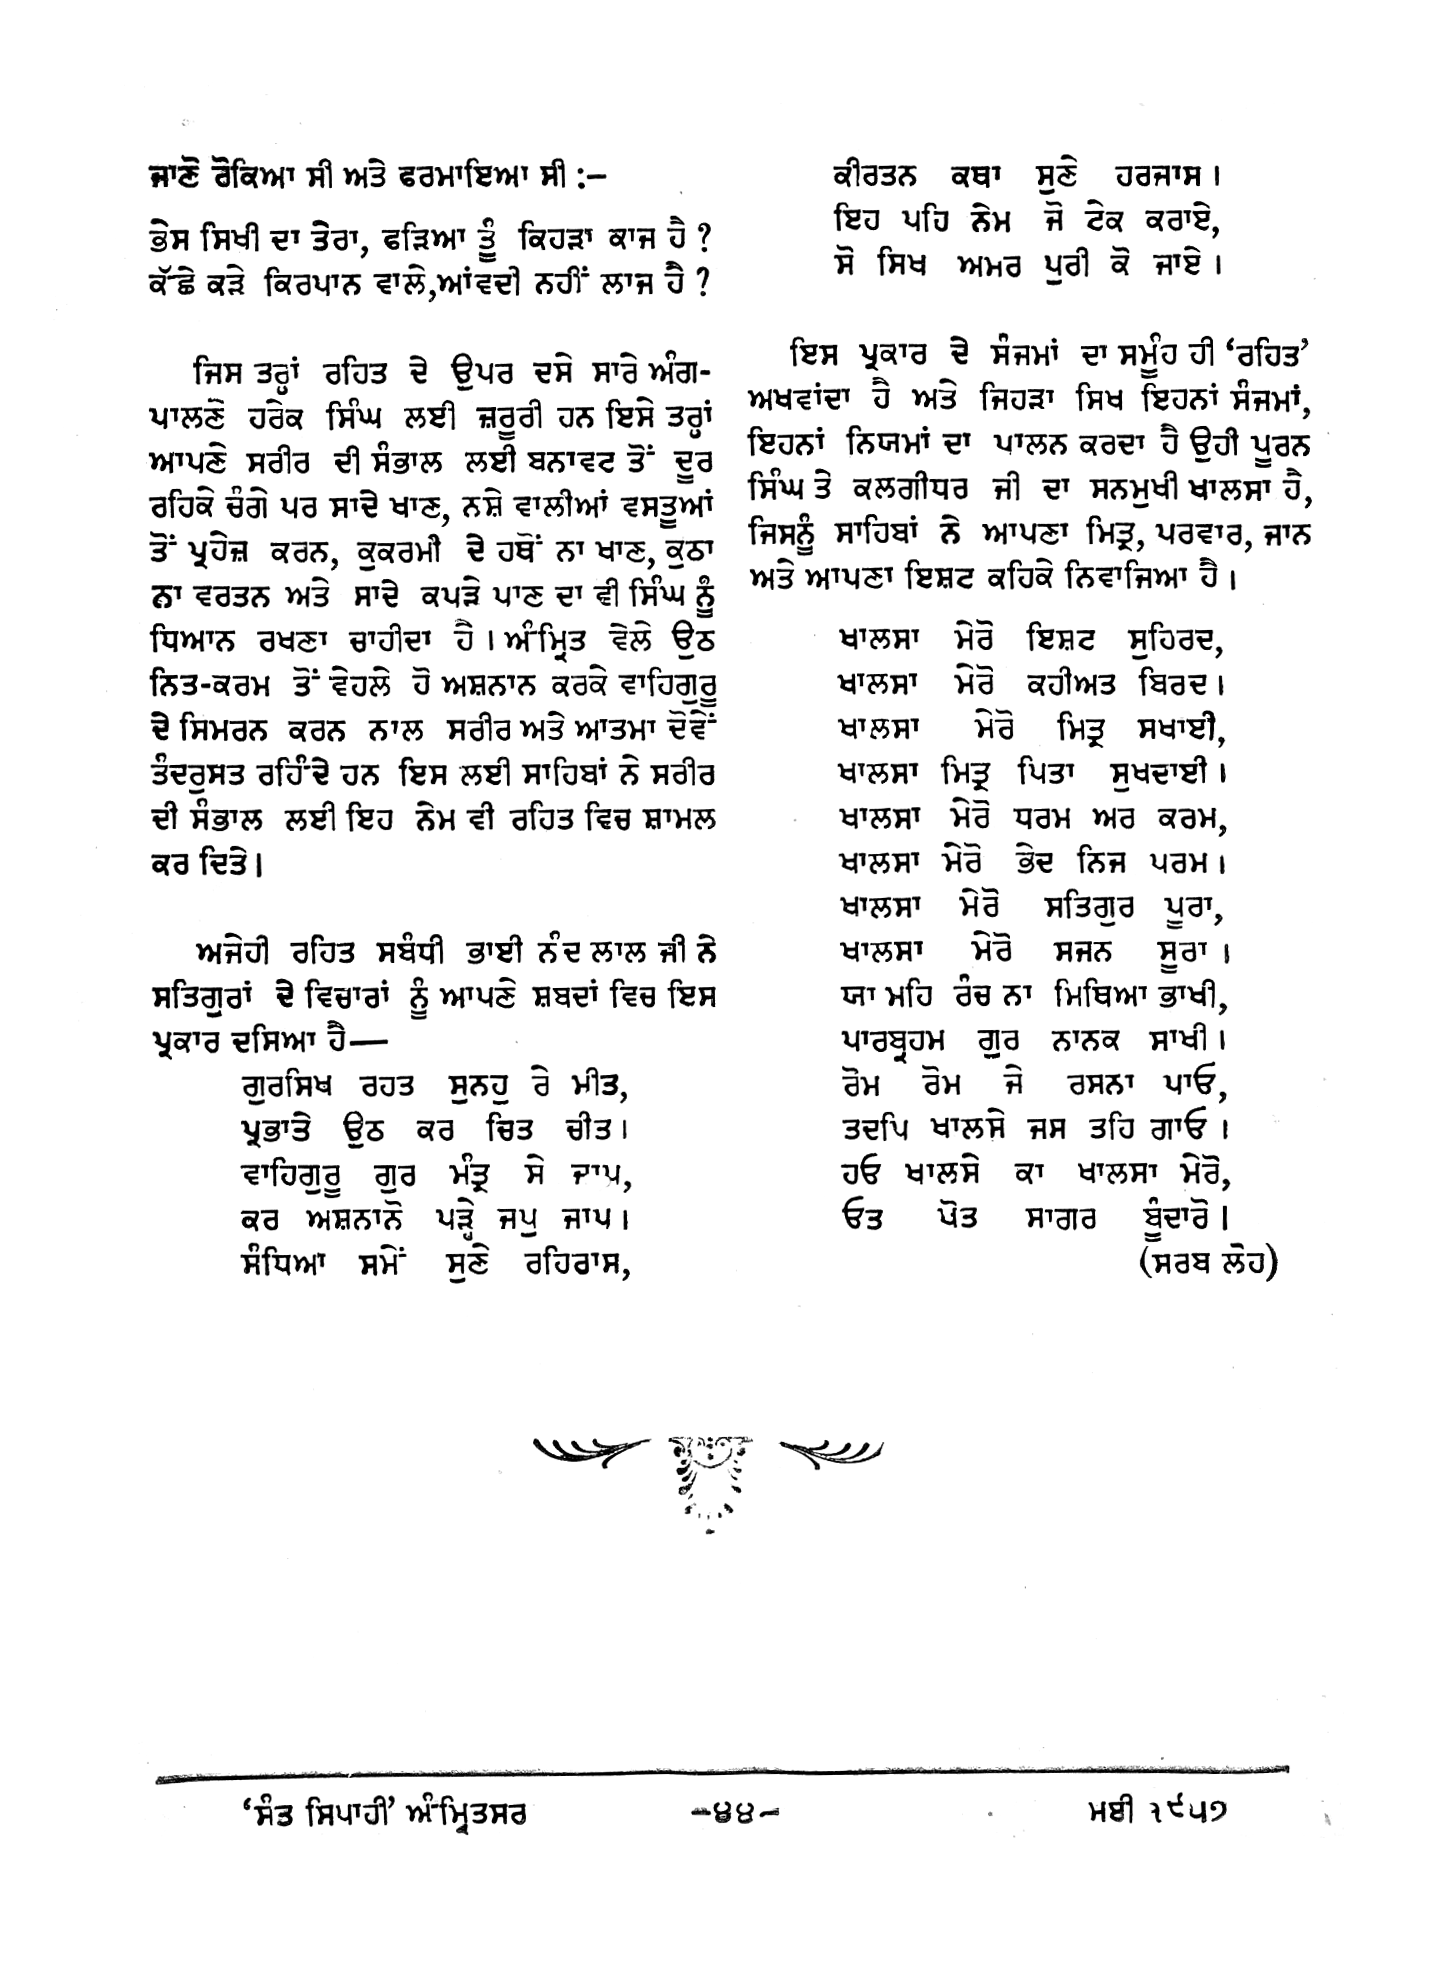 ਜਾਣੋ ਰੋਕਿਆ ਸੀ ਅਤੇ ਫਰਮਾਇਆ ਸੀ :–
ਭੇਸ ਸਿਖੀ ਦਾ ਤੇਰਾ, ਫੜਿਆ ਤੂੰ ਕਿਹੜਾ ਕਾਜ ਹੈ ?
ਕੱਛੇ ਕੜੇ ਕਿਰਪਾਨ ਵਾਲੇ,ਆਂਵਦੀ ਨਹੀਂ ਲਾਜ ਹੈ ?
ਜਿਸ ਤਰ੍ਹਾਂ ਰਹਿਤ ਦੇ ਉਪਰ ਦਸੇ ਸਾਰੇ ਅੰਗ-
ਪਾਲਣੇ ਹਰੇਕ ਸਿੰਘ ਲਈ ਜ਼ਰੂਰੀ ਹਨ ਇਸੇ ਤਰ੍ਹਾਂ
ਆਪਣੇ ਸਰੀਰ ਦੀ ਸੰਭਾਲ ਲਈ ਬਨਾਵਟ ਤੋਂ ਦੂਰ
ਰਹਿਕੇ ਚੰਗੇ ਪਰ ਸਾਦੇ ਖਾਣ, ਨਸ਼ੇ ਵਾਲੀਆਂ ਵਸਤੂਆਂ
ਤੋਂ ਪ੍ਰਹੇਜ਼ ਕਰਨ, ਕੁਕਰਮੀ ਦੇ ਹਥੋਂ ਨਾ ਖਾਣ, ਕੁਠਾ
ਨਾ ਵਰਤਨ ਅਤੇ ਸਾਦੇ ਕਪੜੇ ਪਾਣ ਦਾ ਵੀ ਸਿੰਘ ਨੂੰ
ਧਿਆਨ ਰਖਣਾ ਚਾਹੀਦਾ ਹੈ । ਅੰਮ੍ਰਿਤ ਵੇਲੇ ਉਠ
ਨਿਤ-ਕਰਮ ਤੋਂ ਵੇਹਲੇ ਹੋ ਅਸ਼ਨਾਨ ਕਰਕੇ ਵਾਹਿਗੁਰੂ
ਦੇ ਸਿਮਰਨ ਕਰਨ ਨਾਲ ਸਰੀਰ ਅਤੇ ਆਤਮਾ ਦੋਵੇਂ
ਤੰਦਰੁਸਤ ਰਹਿੰਦੇ ਹਨ ਇਸ ਲਈ ਸਾਹਿਬਾਂ ਨੇ ਸਰੀਰ
ਦੀ ਸੰਭਾਲ ਲਈ ਇਹ ਨੇਮ ਵੀ ਰਹਿਤ ਵਿਚ ਸ਼ਾਮਲ
ਕਰ ਦਿਤੇ।
ਅਜੇਹੀ ਰਹਿਤ ਸਬੰਧੀ ਭਾਈ ਨੰਦ ਲਾਲ ਜੀ ਨੇ
ਸਤਿਗੁਰਾਂ ਦੇ ਵਿਚਾਰਾਂ ਨੂੰ ਆਪਣੇ ਸ਼ਬਦਾਂ ਵਿਚ ਇਸ
ਪ੍ਰਕਾਰ ਦਸਿਆ ਹੈ—
ਗੁਰਸਿਖ ਰਹਤ ਸੁਨਹੁ ਰੇ ਮੀਤ,
ਪ੍ਰਭਾਤੇ ਉਠ ਕਰ ਚਿਤ ਚੀਤ।
ਵਾਹਿਗੁਰੂ ਗੁਰ ਮੰਤ੍ਰ ਸੇ ਜਾਪ,
ਕਰ ਅਸ਼ਨਾਨੋ ਪੜ੍ਹੇ ਜਪੁ ਜਾਪ।
ਸੰਧਿਆ ਸਮੇਂ ਸੁਣੇ ਰਹਿਰਾਸ,
ਕੀਰਤਨ ਕਥਾ ਸੁਣੇ ਹਰਜਾਸ।
ਇਹ ਪਹਿ ਨੇਮ ਜੋ ਟੇਕ ਕਰਾਏ,
ਸੋ ਸਿਖ ਅਮਰ ਪੁਰੀ ਕੋ ਜਾਏ।
ਇਸ ਪ੍ਰਕਾਰ ਦੇ ਸੰਜਮਾਂ ਦਾ ਸਮੂੰਹ ਹੀ ‘ਰਹਿਤ’
ਅਖਵਾਂਦਾ ਹੈ ਅਤੇ ਜਿਹੜਾ ਸਿਖ ਇਹਨਾਂ ਸੰਜਮਾਂ,
ਇਹਨਾਂ ਨਿਯਮਾਂ ਦਾ ਪਾਲਨ ਕਰਦਾ ਹੈ ਉਹੀ ਪੂਰਨ
ਸਿੰਘ ਤੇ ਕਲਗੀਧਰ ਜੀ ਦਾ ਸਨਮੁਖੀ ਖਾਲਸਾ ਹੈ,
ਜਿਸਨੂੰ ਸਾਹਿਬਾਂ ਨੇ ਆਪਣਾ ਮਿਤ੍ਰ, ਪਰਵਾਰ, ਜਾਨ
ਅਤੇ ਆਪਣਾ ਇਸ਼ਟ ਕਹਿਕੇ ਨਿਵਾਜਿਆ ਹੈ।
ਖਾਲਸਾ ਮੇਰੋ ਇਸ਼ਟ ਸੁਹਿਰਦ,
ਖਾਲਸਾ ਮੇਰੋ ਕਹੀਅਤ ਬਿਰਦ।
ਖਾਲਸਾ ਮੇਰੋ ਮਿਤ੍ਰ ਸਖਾਈ,
ਖਾਲਸਾ ਮਿਤ੍ਰ ਪਿਤਾ ਸੁਖਦਾਈ।
ਖਾਲਸਾ ਮੇਰੋ ਧਰਮ ਅਰ ਕਰਮ,
ਖਾਲਸਾ ਮੇਰੋ ਭੇਦ ਨਿਜ ਪਰਮ।
ਖਾਲਸਾ ਮੇਰੋ ਸਤਿਗੁਰ ਪੂਰਾ,
ਖਾਲਸਾ ਮੇਰੋ ਸਜਨ ਸੂਰਾ।
ਯਾ ਮਹਿ ਰੰਚ ਨਾ ਮਿਥਿਆ ਭਾਖੀ,
ਪਾਰਬ੍ਰਹਮ ਗੁਰ ਨਾਨਕ ਸਾਖੀ।
ਰੋਮ ਰੋਮ ਜੇ ਰਸਨਾ ਪਾਓ,
ਤਦਪਿ ਖਾਲਸੇ ਜਸ ਤਹਿ ਗਾਓ।
ਹਓ ਖਾਲਸੇ ਕਾ ਖਾਲਸਾ ਮੇਰੋ,
ਓਤ ਪੋਤ ਸਾਗਰ ਬੂੰਦਾਰੋ।
(ਸਰਬ ਲੋਹ)
‘ਸੰਤ ਸਿਪਾਹੀ’ ਅੰਮ੍ਰਿਤਸਰ –੪੪– ਮਈ ੧੯੫੭